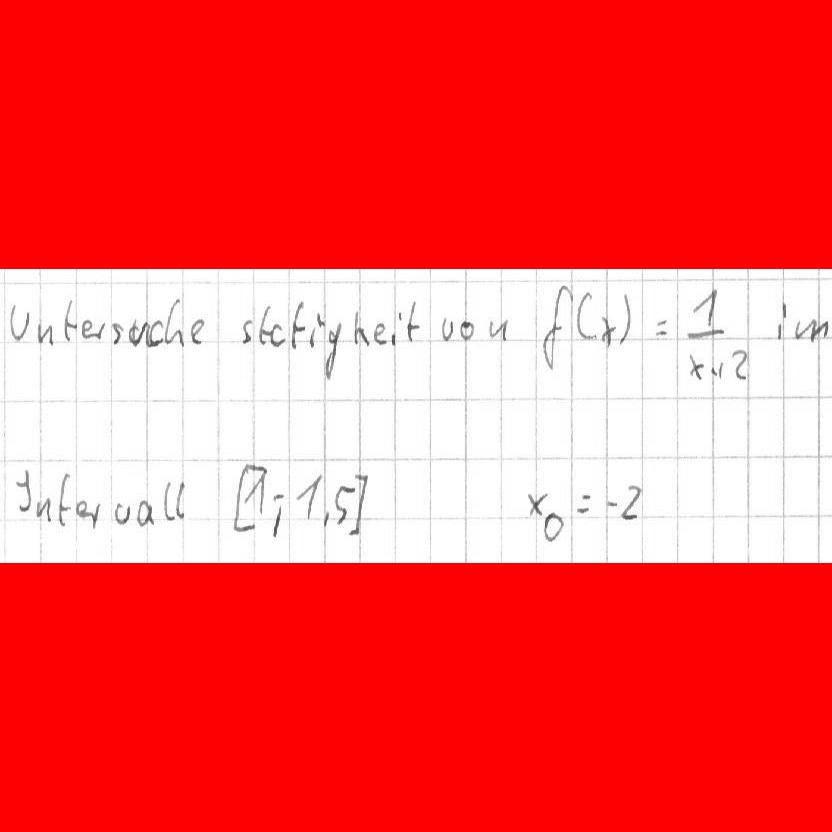 Untersuche stetigkeit von f(x) = 1/x+2 im
Intervall [1; 1,5] x₀ = -2